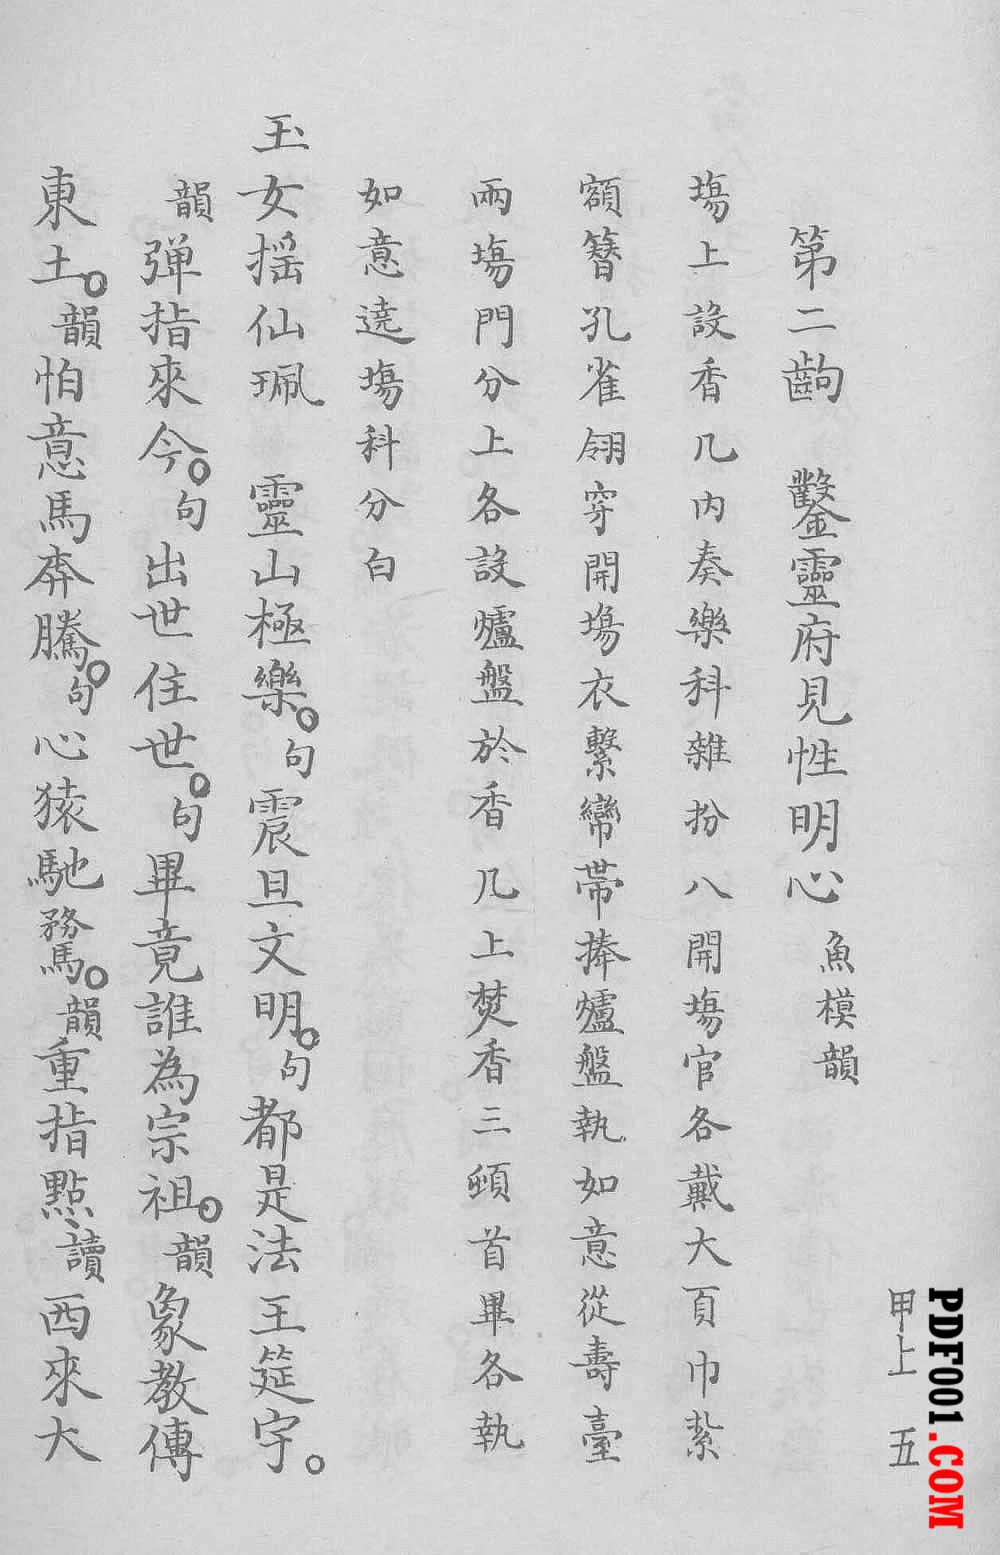 甲上 五
第二齣 鑿靈府見性明心 魚模韻
塲上設香几内奏樂科雜扮八開塲官各戴大頁巾紮
額簪孔雀翎穿開塲衣繫鸞帶捧爐盤執如意從壽臺
兩塲門分上各設爐盤於香几上焚香三頓首畢各執
如意遶塲科分白
玉女揺仙珮 靈山極樂句震旦文明句都是法王筵宇
韻弹指來今句出世住世句畢竟誰為宗祖韻象教傳
東土韻怕意馬奔騰句心猿馳騖韻重指點讀西來大
PDF001.COM